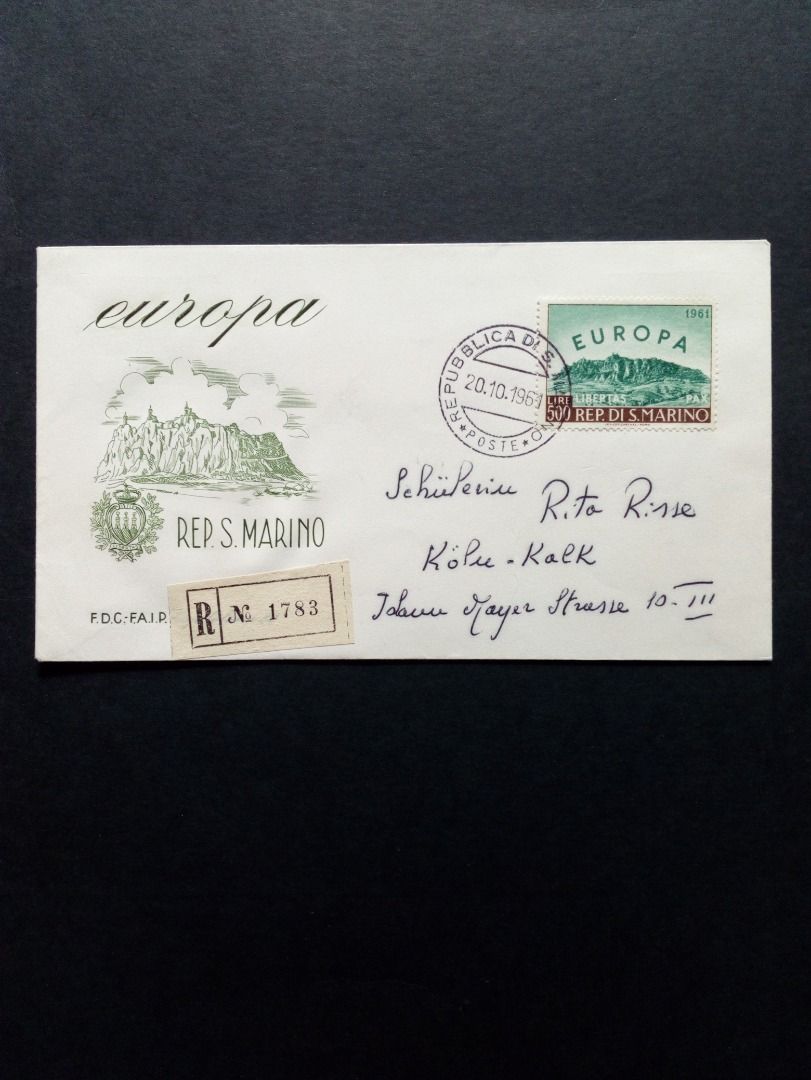 europa
REP. S. MARINO
F.D.C.-F.A.I.P.
R No 1783
REPUBBLICA DI S.
20.10.1961
POSTE
1961
EUROPA
LIBERTAS PAX
LIRE 500 REP. DI S. MARINO
Schülerin Rita Risse
Köln-Kalk
Mayer Strasse 10-III